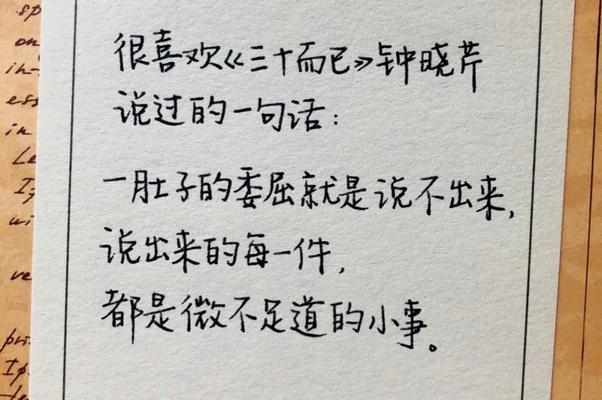 很喜欢《三十而已》钟晓芹
说过的一句话:
一肚子的委屈就是说不出来,
说出来的每一件,
都是微不足道的小事。
sp
on
in
ess
in
Le
wi
ve